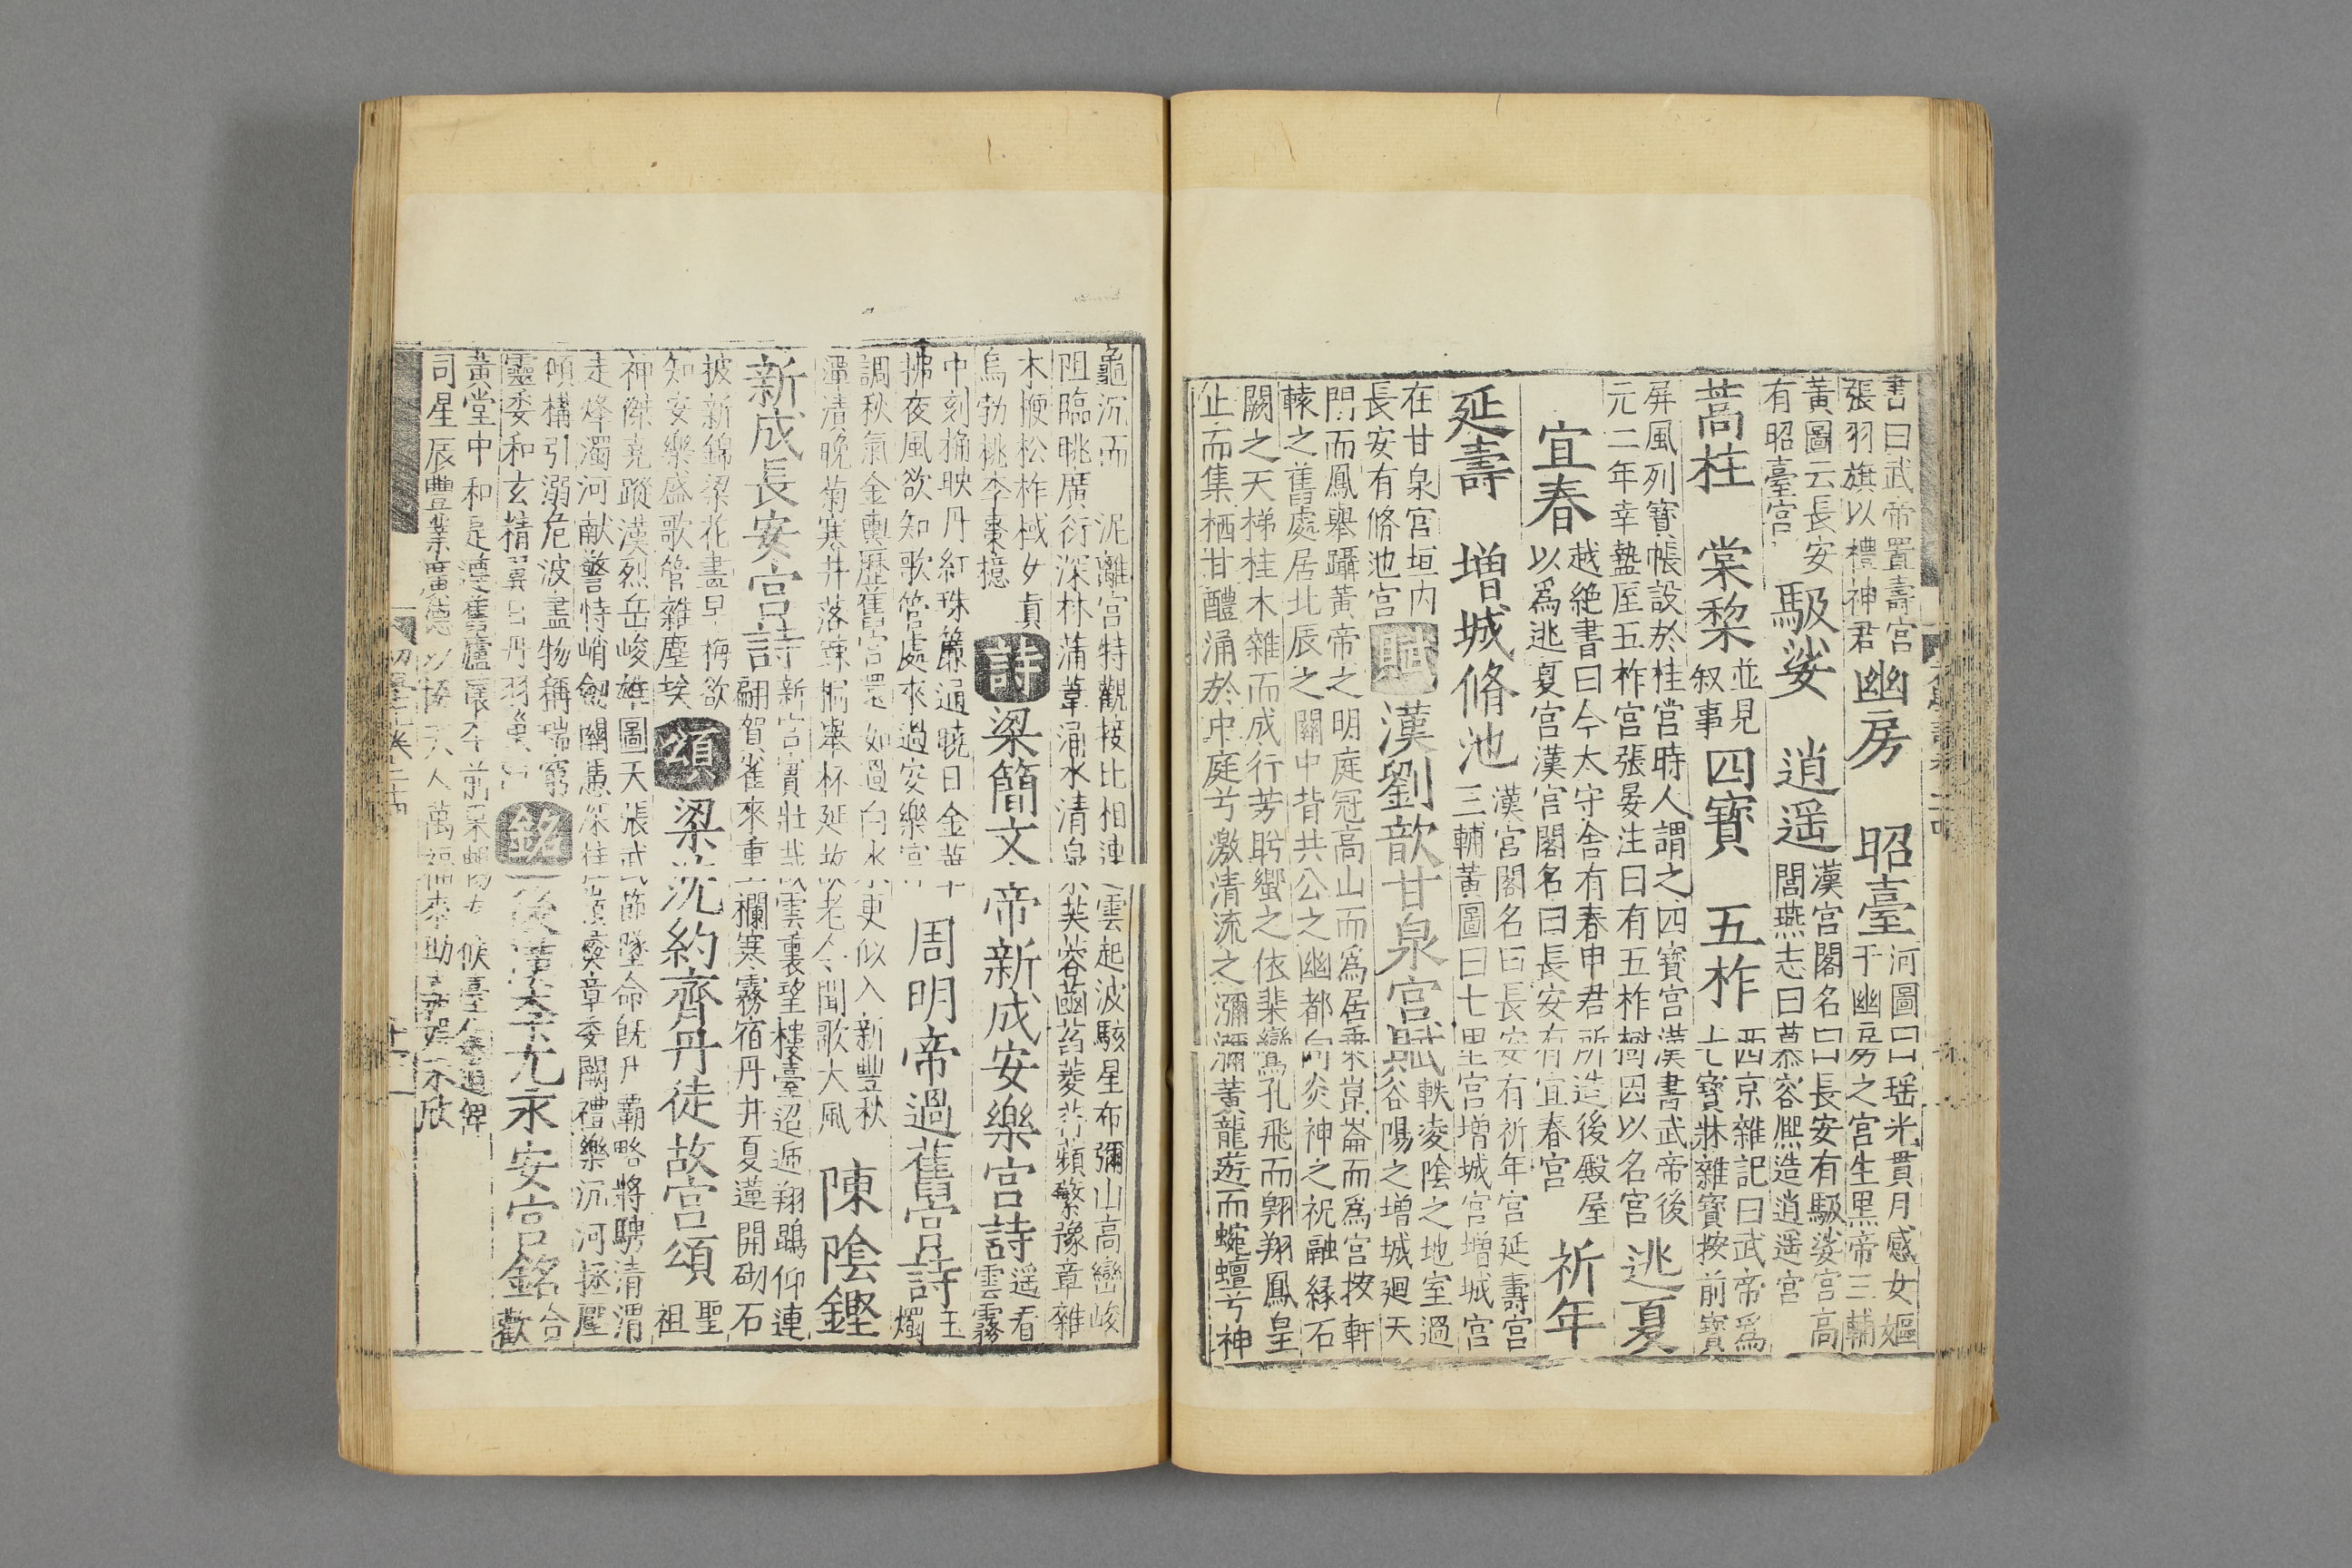 書曰武帝置壽宮
張羽旗以禮神君
幽房
昭臺
河圖曰瑤光貫月感女嫗
于幽房之宮生黑帝三輔
黃圖云長安
有昭臺宮
馺娑
逍遥
漢宮閣名曰長安有馺娑宮高
閭燕志曰慕容熈造逍遥宮
蒿柱
棠棃
並見
叙事
四寳
五柞
西京雜記曰武帝爲
七寳牀雜寳按前寳
屏風列寳帳設於桂宮時人謂之四寳宮漢書武帝後
元二年幸盩厔五柞宮張晏注曰有五柞樹因以名宮
逃夏
宜春
越絶書曰今太守舎有春申君所造後殿屋
以爲逃夏宮漢宮閣名曰長安有宜春宮
祈年
延壽
増城
脩池
漢宮閣名曰長安有祈年宮延壽宮
三輔黃圖曰七里宮増城宮増城宮
在甘泉宮垣内
長安有脩池宮
賦
漢劉歆甘泉宮賦
軼凌陰之地室過
谷陽之増城廻天
門而鳳舉躡黃帝之明庭冠高山而爲居乗崑崙而爲宮按軒
轅之舊處居北辰之關中背共公之幽都向炎神之祝融縁石
闕之天梯桂木雜而成行芳盻蠁之依斐鸞孔飛而翺翔鳳皇
止而集栖甘醴涌於中庭兮激清流之瀰瀰黃龍遊而蜿蟺兮神
龜沉而 泥離宮特觀接比相連雲起波駭星布彌山高巒峻
阻臨眺廣衍深林蒲葦涌水清泉芙蓉菡萏菱荇蘋蘩豫章雜
木楩松柞棫女貞
烏勃桃李棗檍
詩
梁簡文帝新成安樂宮詩
遥看
雲霧
中刻桷映丹紅珠簾通曉日金華
拂夜風欲知歌管處來過安樂宮
周明帝過舊宮詩
玉
燭
調秋氣金輿歷舊宮還如過白水更似入新豐秋
潭漬晚菊寒井落踈桐舉杯延故老今聞歌大風
陳陰鏗
新成長安宮詩
新宮實壯哉雲裏望樓臺迢遞翔鵾仰連
翩賀雀來重欄寒霧宿丹井夏蓮開砌石
披新錦梁花畫早梅欲
知安樂盛歌管雜塵埃
頌
梁沈約齊丹徒故宮頌
聖
祖
神傑堯蹤漢烈岳峻雄圖天張武節墜命旣升霸略將騁清渭
走烽濁河献警恃峭劔關憑深桂 章委闕禮樂沉河拯壓
傾構引溺危波盡物稱瑞窮
靈委和玄精翼日丹羽
銘
後漢李尤永安宮銘
合
歡
黃堂中和是遵舊廬
司星辰豊業廣德以協天人萬福